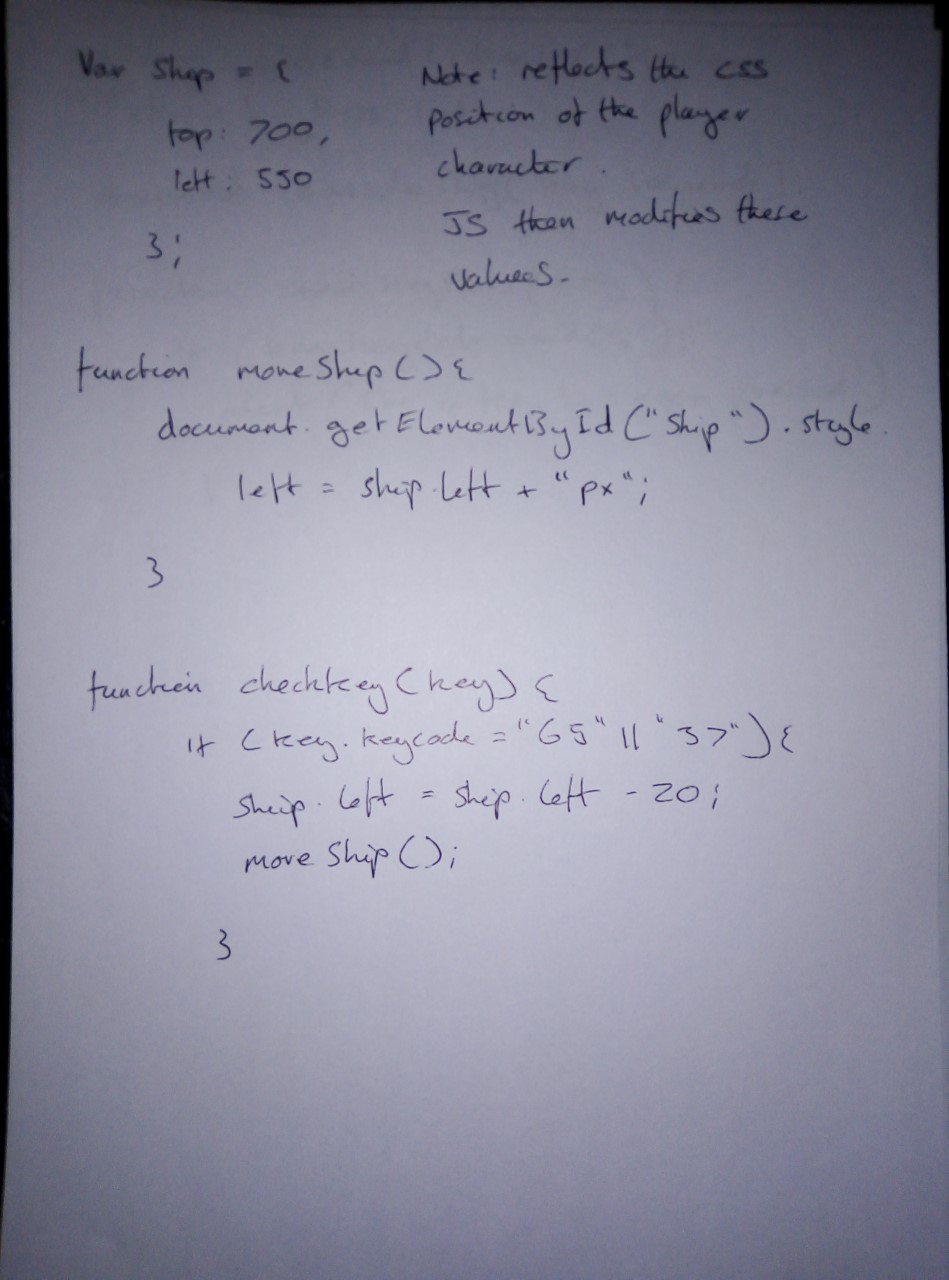 Var Ship = {
top: 700,
left: 550
};
Note: reflects the css
position of the player
character.
JS then modifies these
values.
function moveShip () {
document.getElementById ("Ship").style.
left = ship.left + "px";
}
function checkkey (key) {
if (key.keycode = "65" || "37") {
ship.left = ship.left - 20;
move Ship ();
}